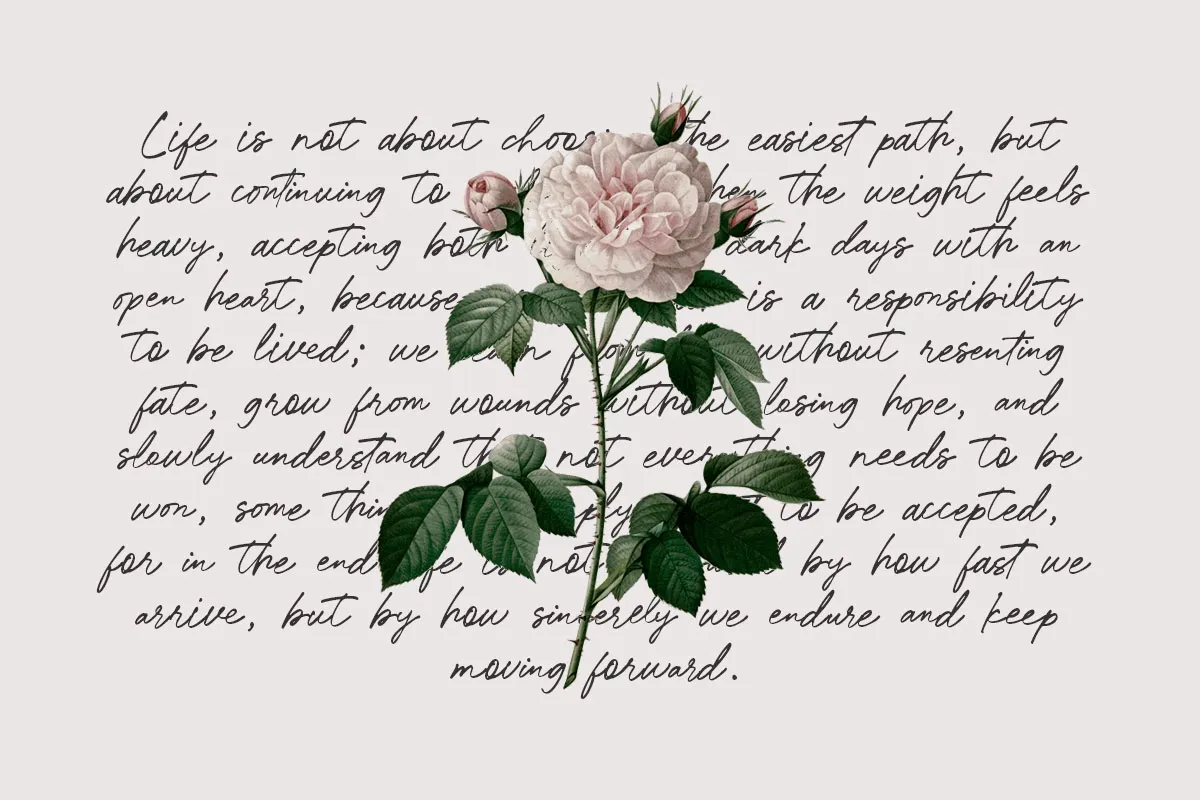 Life is not about choosing the easiest path, but
about continuing to when the weight feels
heavy, accepting both dark days with an
open heart, because is a responsibility
to be lived; we learn from without resenting
fate, grow from wounds without losing hope, and
slowly understand that not everything needs to be
won, some things to be accepted,
for in the end life is not by how fast we
arrive, but by how sincerely we endure and keep
moving forward.